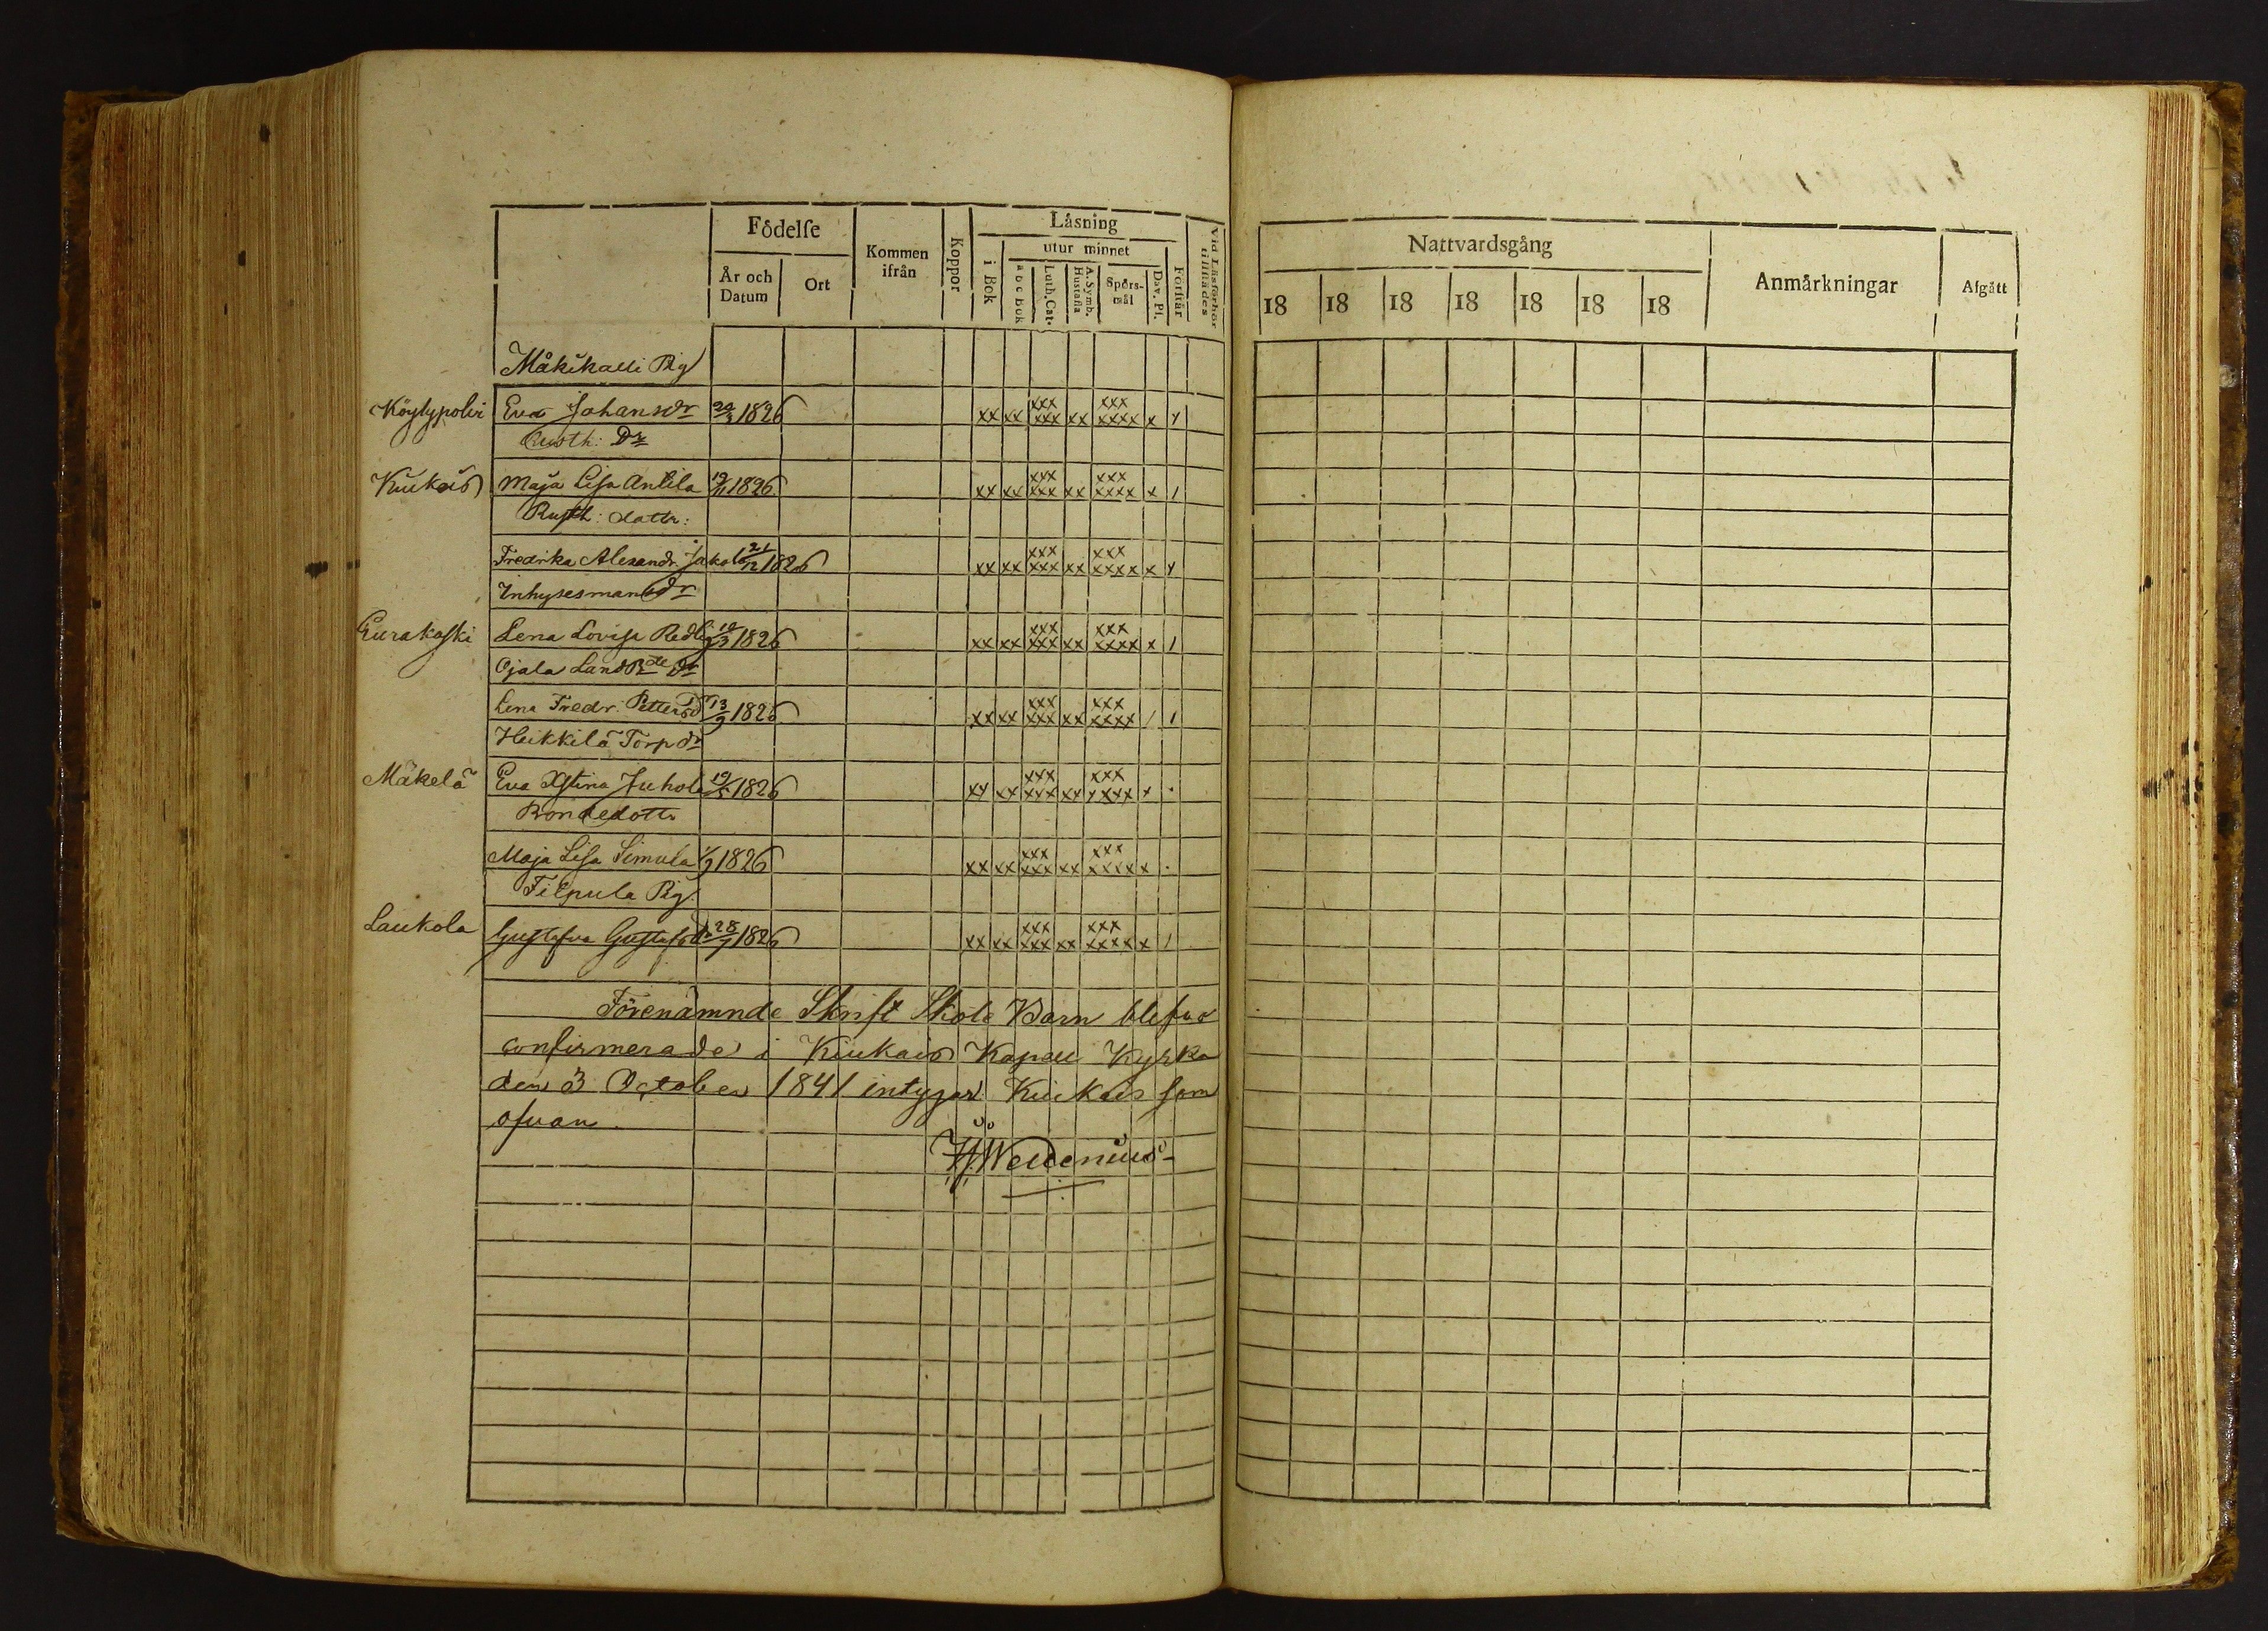 Födelse
Kommen ifrån
Koppor
Låsning
Vid Läsförhör tillstädes
År och Datum
Ort
i Bok
utur minnet
Förstår
a b c Bok
Luth. Cat.
A. Symb. Hustafla
Spörsmål
Dav. Ps.
Nattvardsgång
Anmårkningar
Afgått
18 18 18 18 18 18 18
Måkikalli Pig
Köylypolvi Eva Johansdr 24/3 1826 xx xx xxx xxx xx xxx xxxx x
Rusth: Dr
Kiukais Maja Lisa Antila 19/11 1826 xx xx xxx xxx xx xxx xxxx x /
Rusth: dottr:
Fredrika Alexandr. Jakobs 21/12 1826 xx xx xxx xxx xx xxx xxxx x
Inhysesmans dr
Eurakoski Lena Lovisa Redlig 10/3 1826 xx xx xxx xxx xx xxx xxxx x /
Ojala Landb de dr
Lena Fredr. Pettersdr 13/9 1826 xx xx xxx xxx xx xxx xxxx / /
Heikkilä Torp dr
Mäkelä Eva Xstina Juhola 19/5 1826 xx xx xxx xxx xx xxx xxxx x .
Bondedottr
Maja Lisa Simula 1/9 1826 xx xx xxx xxx xx xxx xxxx x .
Filpula Pig.
Laukola Gustafva Gustafsdr 28/7 1826 xx xx xxx xxx xx xxx xxxx x /
Förenämnde Skrift Skole Barn blefvo
confirmerade i Kiukais Kapell Kyrka
den 3 October 1841 intygar Kiukais som
ofvan.
Wellenius